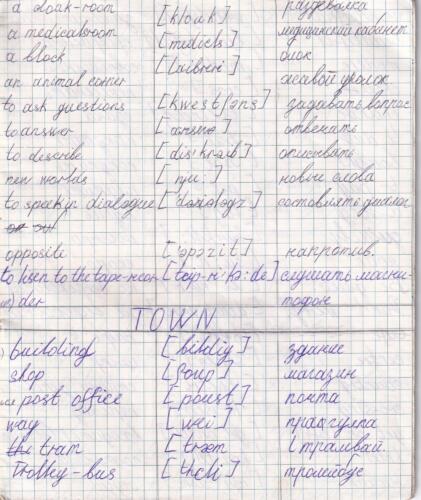 a cloak-room [klouk] раздевалка
a medicalroom [medicls] медицинский кабинет
a block [laibreri] блок
an animal corner живой уголок
to ask questions [kwestʃəns] задавать вопрос
to answer отвечать
to describe [dis'kraib] описывать
new worlds [nju:] новые слова
to speek in dialogue ['daialogz] составлять диалог
opposite ['opəzit] напротив.
to lisen to the tape-recor- [teip-ri'ko:de] слушать магни-
der тофон
TOWN
building [bildiŋ] здание
shop [ʃoup] магазин
post office [poust] почта
way [wei] прогулка
tram [træm трамвай.
Trolley-bus [troli] тролейбус